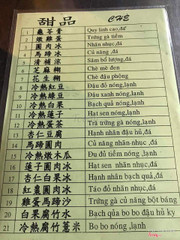 甜品 CHÈ
1 龜苓膏 Quy linh cao,đá
2 燉雞蛋 Trứng gà tiềm
3 圓肉冰 Nhãn nhục,đá
4 馬蹄冰 Củ năng ,đá
5 清補涼 Sâm bổ lượng,đá
6 芝麻糊 Chè mè đen
7 花生糊 Chè đậu phộng
8 冷熱紅豆 Đậu đỏ nóng,lạnh
9 冷熱綠豆 Đậu xanh nóng,lạnh
10 冷熱白果 Bạch quả nóng,lạnh
11 冷熱蓮子 Hạt sen nóng,lạnh
12 冷熱蛋茶 Trà trứng nóng,lạnh
13 杏仁豆腐 Hạnh nhân,đá
14 馬蹄圓肉 Củ năng nhãn nhục,đá
15 冷熱燉木瓜 Đu đủ tiềm nóng,lạnh
16 蓮子圓肉冰 Hạt sen nhãn nhục,đá
17 杏仁白果冰 Hạnh nhân bạch quả,đá
18 紅棗圓肉冰 Táo đỏ nhãn nhục,đá
19 雞蛋馬蹄沙 Trứng gà củ năng bột báng
20 白果腐竹水 Bạch quả bo bo đậu hủ ky
21 冷熱腐竹薏米 Bo bo nóng ,lạnh